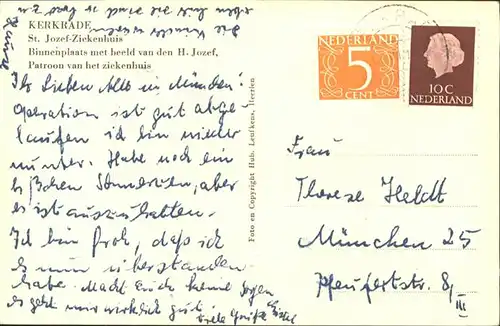 KERKRADE
St. Jozef-Ziekenhuis
Binnenplaats met beeld van den H. Jozef,
Patroon van het ziekenhuis
Ihr Lieben alle in München!
Operation ist gut abge-
laufen ich bin wieder
munter. Habe noch ein
bißchen Schmerzen, aber
es ist auszuhalten.
Ich bin froh, daß ich
es nun überstanden
habe. Macht Euch keine Sorgen
es geht mir wirklich gut.
Viele Grüße
Foto en Copyright Hub. Leufkens, Heerlen
NEDERLAND
5
CENT
10 C
NEDERLAND
Frau
Therese Heldt
München 25
Pfeuferstr. 8/III